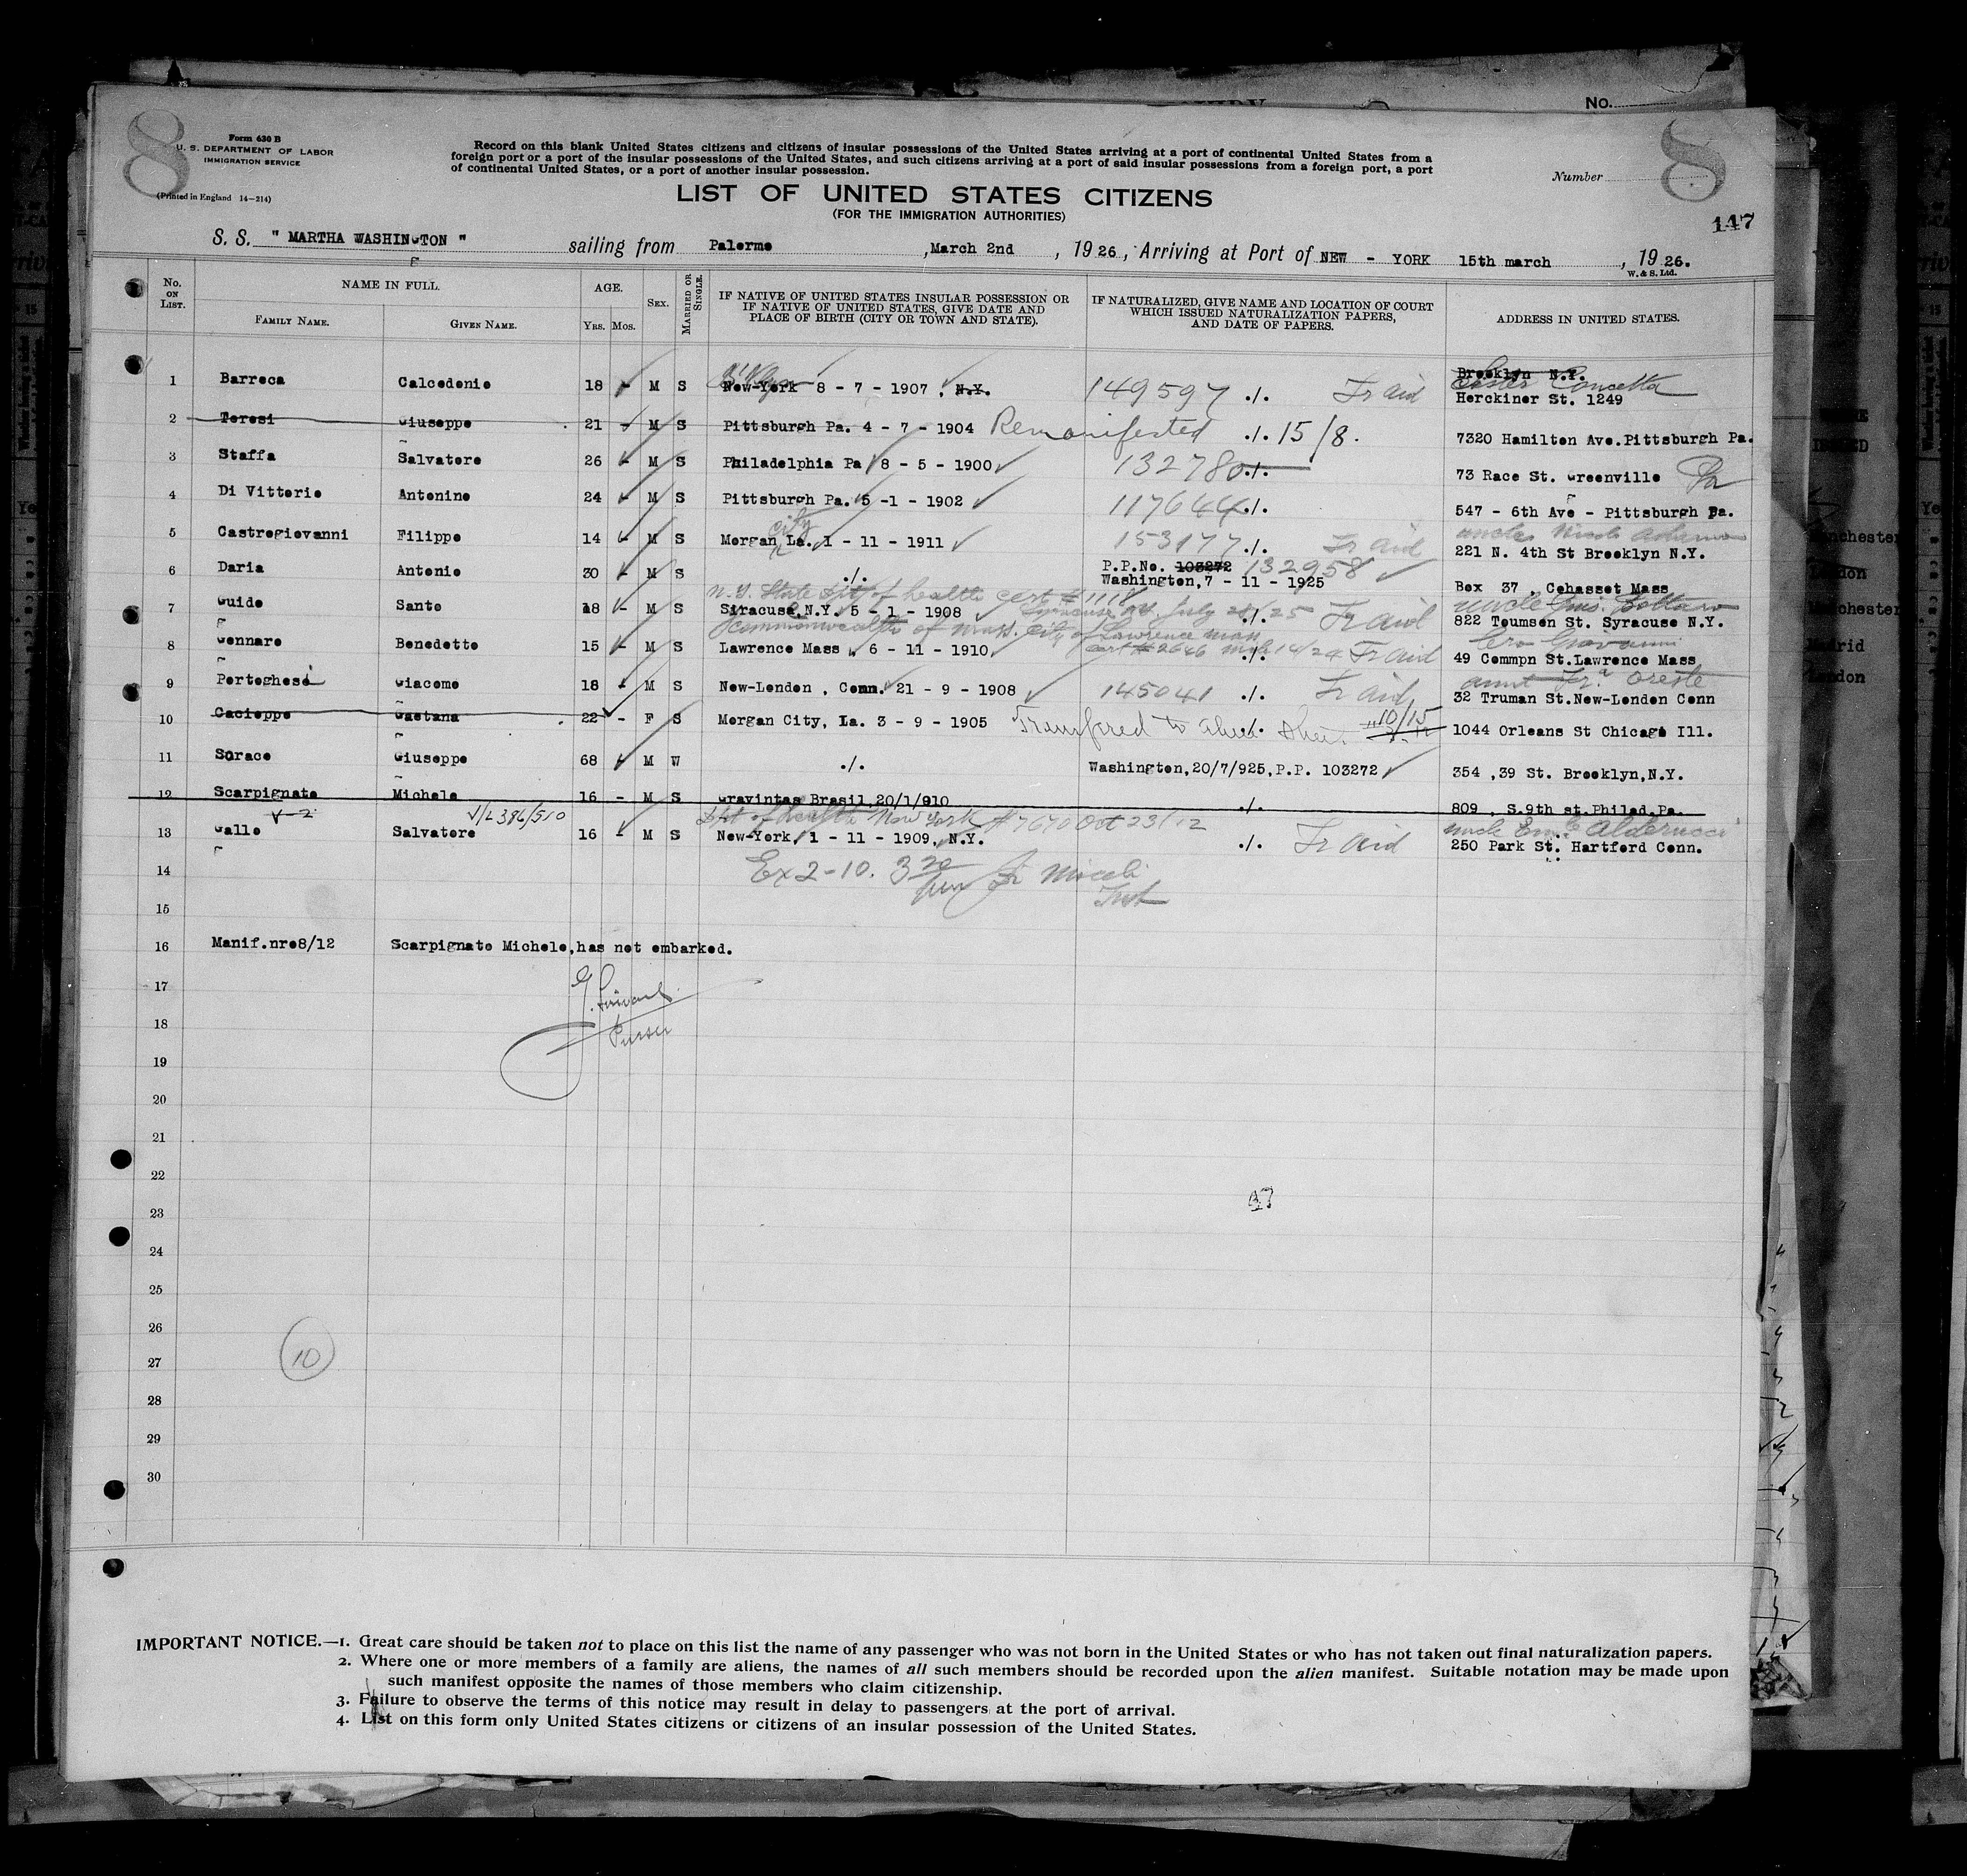 No.
8
8
Form 630 B
U. S. DEPARTMENT OF LABOR
IMMIGRATION SERVICE
(Printed in England 14—214)
Record on this blank United States citizens and citizens of insular possessions of the United States arriving at a port of continental United States from a
foreign port or a port of the insular possessions of the United States, and such citizens arriving at a port of said insular possessions from a foreign port, a port
of continental United States, or a port of another insular possession.
Number
LIST OF UNITED STATES CITIZENS
(FOR THE IMMIGRATION AUTHORITIES)
147
S. S. " MARTHA WASHINGTON " sailing from Palermo , March 2nd , 1926, Arriving at Port of NEW - YORK 15th march , 1926.
W. & S. Ltd.
No. ON LIST.
NAME IN FULL.
FAMILY NAME.
GIVEN NAME.
AGE.
YRS. MOS.
SEX.
MARRIED OR SINGLE.
IF NATIVE OF UNITED STATES INSULAR POSSESSION OR
IF NATIVE OF UNITED STATES, GIVE DATE AND
PLACE OF BIRTH (CITY OR TOWN AND STATE).
IF NATURALIZED, GIVE NAME AND LOCATION OF COURT
WHICH ISSUED NATURALIZATION PAPERS,
AND DATE OF PAPERS.
ADDRESS IN UNITED STATES.
Brooklyn N.Y.
Sister Concetta
1 Barreca Calcedonio 18 - M S New-York 8 - 7 - 1907 , N.Y. 149597 ./. Tr aid Herckiner St. 1249
2 Teresi Giuseppe 21 - M S Pittsburgh Pa. 4 - 7 - 1904 Remanifested ./. 15/8. 7320 Hamilton Ave.Pittsburgh Pa.
3 Staffa Salvatore 26 - M S Philadelphia Pa 8 - 5 - 1900 132780 ./. 73 Race St. Greenville Pa
4 Di Vittorio Antonino 24 - M S Pittsburgh Pa. 5 -1 - 1902 117644 ./. 547 - 6th Ave - Pittsburgh Pa.
city
uncle Nicolo
5 Castrogiovanni Filippo 14 - M S Morgan La. 1 - 11 - 1911 153177 ./. Tr aid 221 N. 4th St Brooklyn N.Y.
P.P.No. 103272 132958
6 Daria Antonio 30 - M S ./. Washington,7 - 11 - 1925 Box 37 , Cohasset Mass
N.Y. State Dpt of health cert # 1118
Syracuse N.Y. July 28/25 Tr aid
uncle Gius.
7 Guido Santo 18 - M S Siracusa,N.Y. 5 - 1 - 1908 ./. 822 Toumson St. Syracuse N.Y.
Commonwealth of Mass. City of Lawrence Mass
cert # 2646 14/24 Tr aid
bro Giovanni
8 Gennaro Benedetto 15 - M S Lawrence Mass , 6 - 11 - 1910 ./. 49 Commpn St.Lawrence Mass
aunt Fr.a Oreste
9 Portoghesi Giacomo 18 - M S New-London , Conn. 21 - 9 - 1908 145041 ./. Tr aid 32 Truman St.New-London Conn
10 Cacioppo Gaetana 22 - F S Morgan City, La. 3 - 9 - 1905 Transferred to Alien ./. Sheet 10/15 1044 Orleans St Chicago Ill.
11 Sorace Giuseppe 68 - M W ./. Washington,20/7/925,P.P. 103272 354 ,39 St. Brooklyn,N.Y.
12 Scarpignato Michele 16 - M S Gravintas Brasil 20/1/910 ./. 809 , S.9th st.Philad.Pa.
V-2
V/L 386/510
Dpt of health New York # 7670 Oct 23/12
13 Gallo Salvatore 16 - M S New-York, 1 - 11 - 1909, N.Y. ./. Tr aid 250 Park St. Hartford Conn.
14 Ex 2-10. 3 20 Miceli
15
16 Manif.nro8/12 Scarpignato Michele,has not embarked.
17
18 Purser
19
20
21
22
23
24
25
26
27
10
28
29
30
IMPORTANT NOTICE.—1. Great care should be taken not to place on this list the name of any passenger who was not born in the United States or who has not taken out final naturalization papers.
2. Where one or more members of a family are aliens, the names of all such members should be recorded upon the alien manifest. Suitable notation may be made upon
such manifest opposite the names of those members who claim citizenship.
3. Failure to observe the terms of this notice may result in delay to passengers at the port of arrival.
4. List on this form only United States citizens or citizens of an insular possession of the United States.